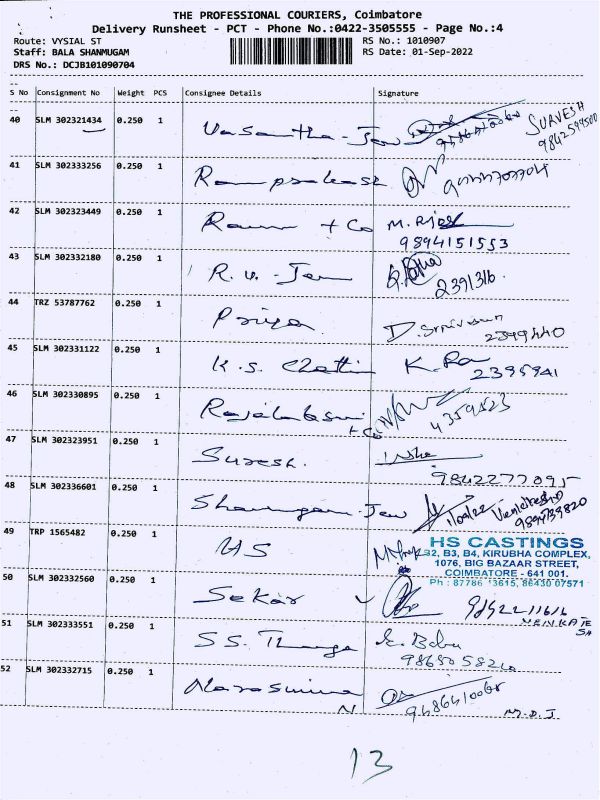 THE PROFESSIONAL COURIERS, Coimbatore
Delivery Runsheet - PCT - Phone No.:0422-3505555 - Page No.:4
Route: VYSIAL ST
RS No.: 1010907
Staff: BALA SHANMUGAM
RS Date: 01-Sep-2022
DRS No.: DCJB101090704
S No Consignment No Weight PCS Consignee Details Signature
40 SLM 302321434 0.250 1 Vasantha - Jew
SURVESH
41 SLM 302333256 0.250 1 Ramprakash
42 SLM 302323449 0.250 1 Ram + Co
9894151553
43 SLM 302332180 0.250 1 R.V. - Jew
2391316.
44 TRZ 53787762 0.250 1 Priya
D. Srinivasan
2399440
45 SLM 302331122 0.250 1 K.S. Chetti
2395941
46 SLM 302330895 0.250 1 Rajalaksmi + Co
4359523
47 SLM 302323951 0.250 1 Suresh.
9842277095
48 SLM 302336601 0.250 1 Shanmugam - Jew
49 TRP 1565482 0.250 1 HS
HS CASTINGS
B2, B3, B4, KIRUBHA COMPLEX,
1076, BIG BAZAAR STREET,
COIMBATORE - 641 001.
Ph : 87786 3615, 86430 07571
50 SLM 302332560 0.250 1 Sekar
51 SLM 302333551 0.250 1 S.S. Thanga
E. Babu
52 SLM 302332715 0.250 1 Narasimma N
9486410068
13